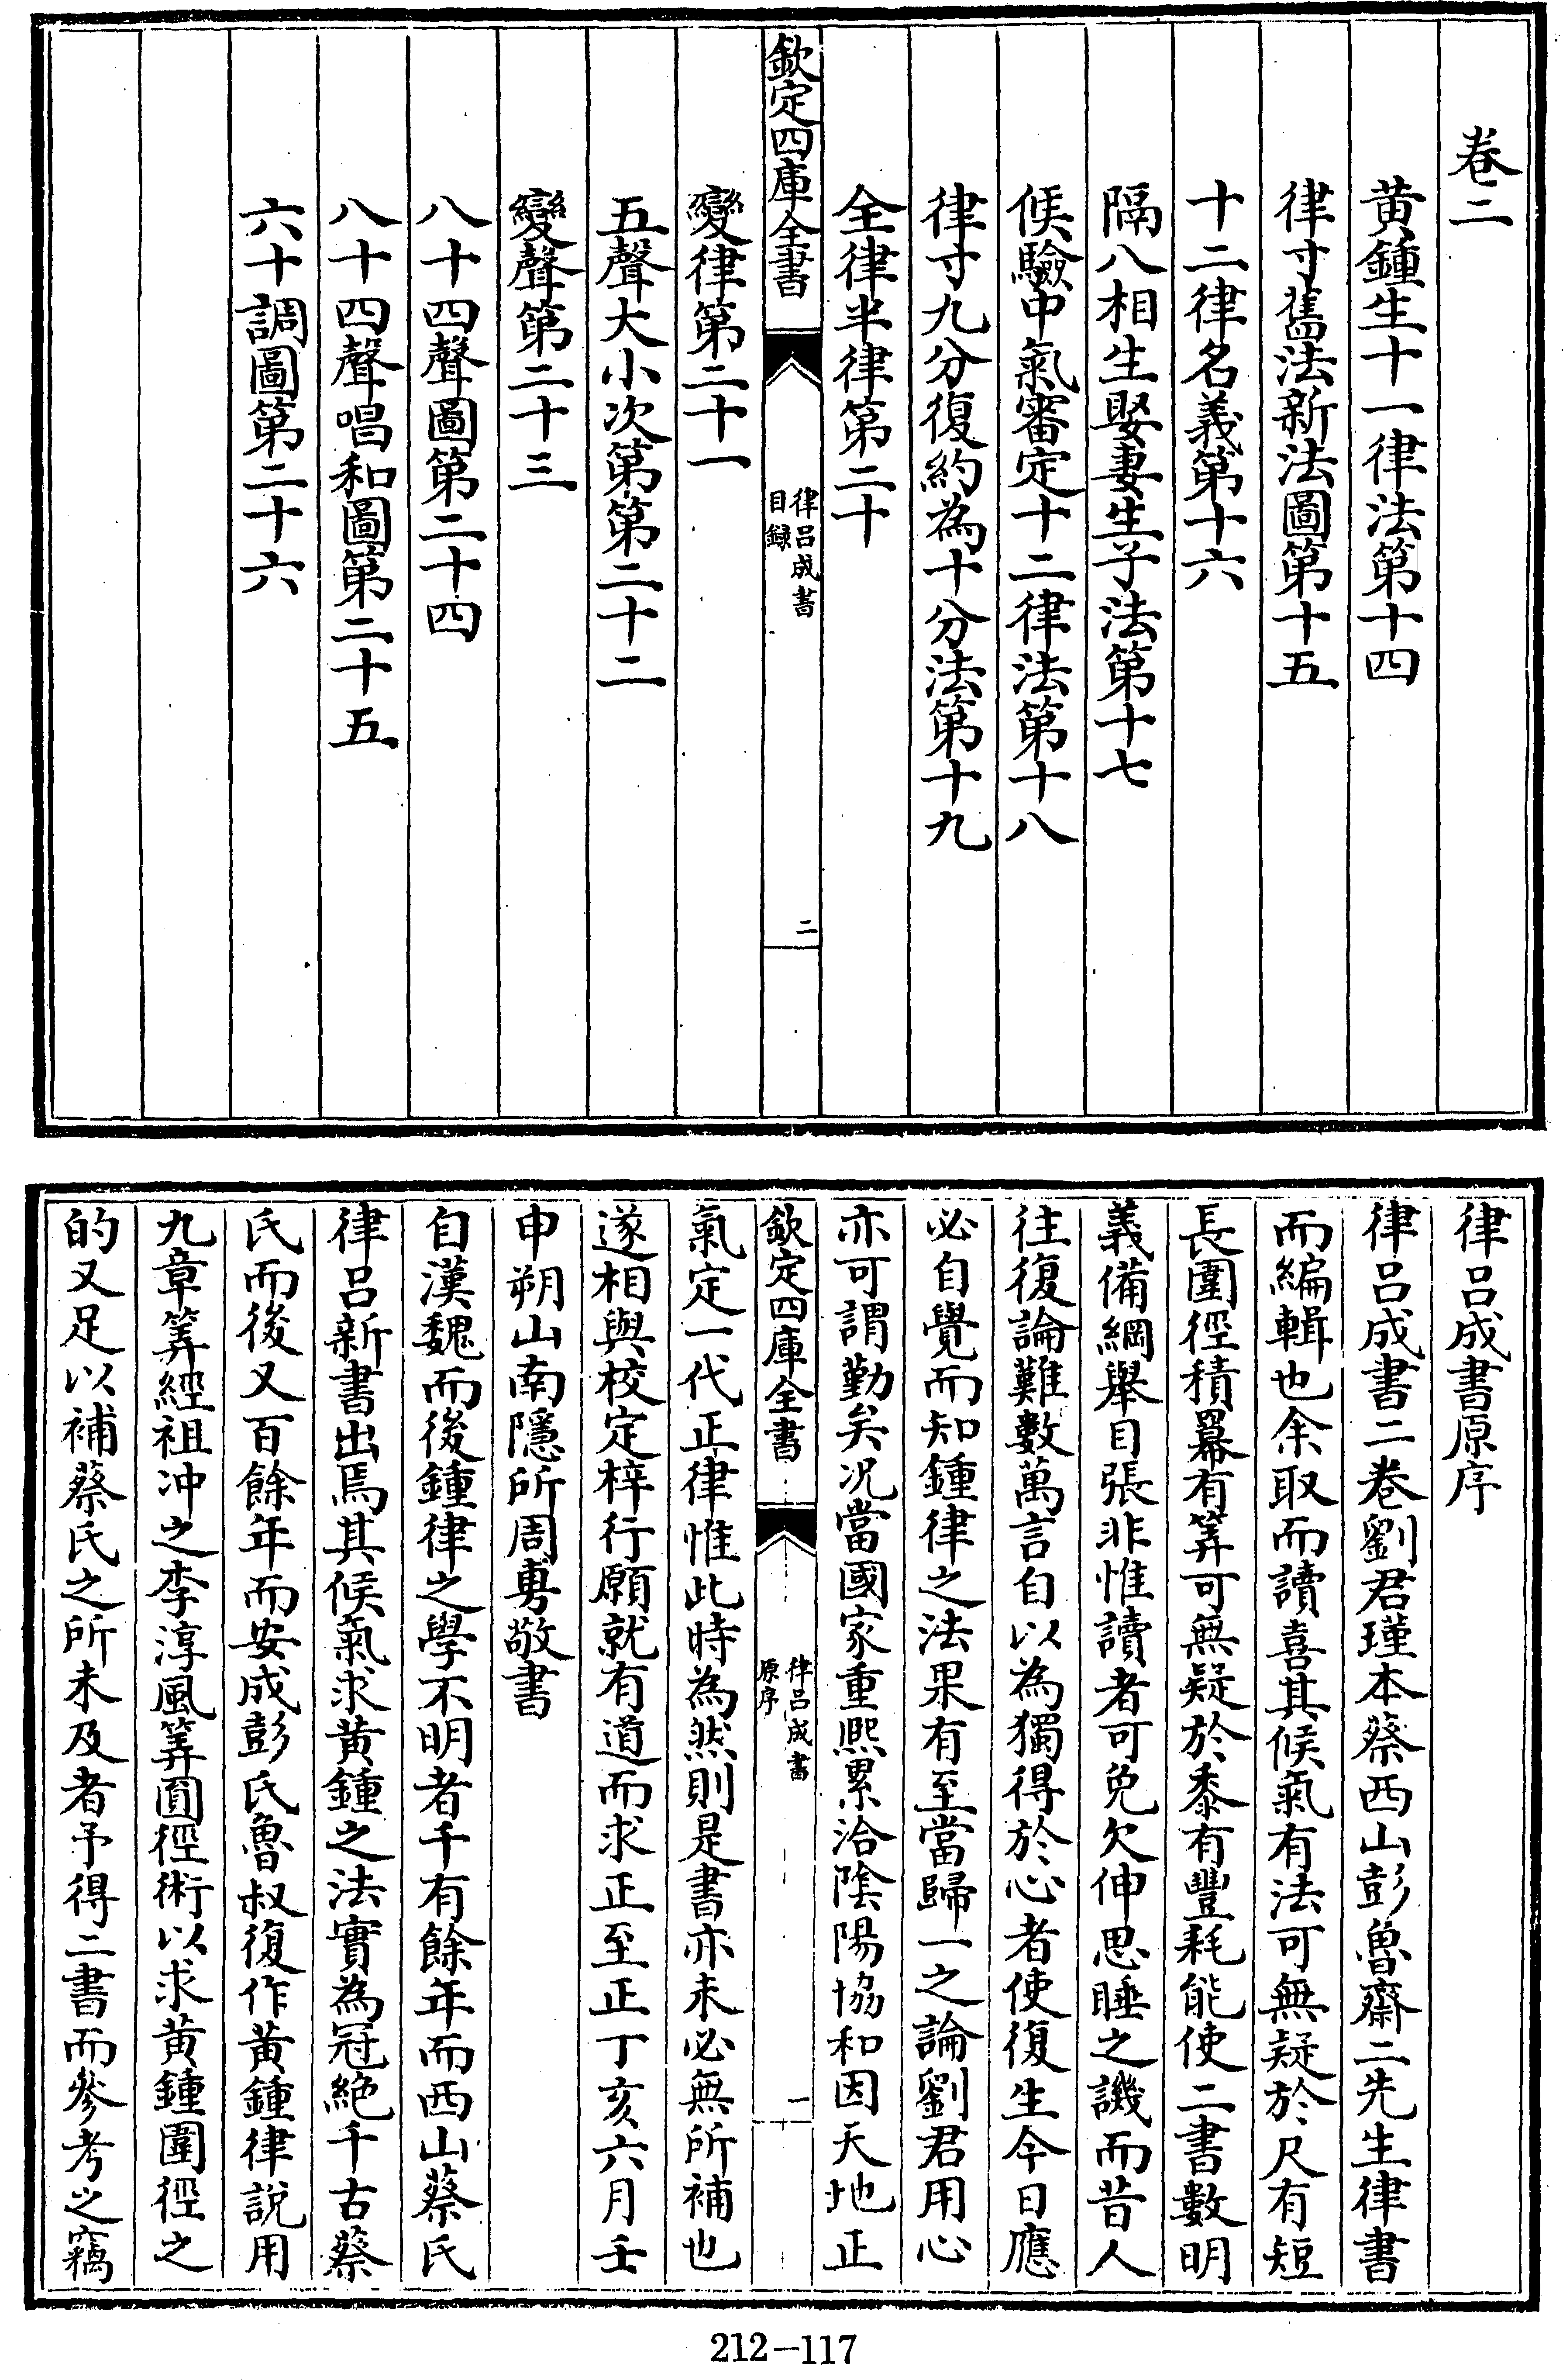 卷二
黃鍾生十一律法第十四
律寸舊法新法圖第十五
十二律名義第十六
隔八相生娶妻生子法第十七
候驗中氣審定十二律法第十八
律寸九分復約為十分法第十九
全律半律第二十
欽定四庫全書
律呂成書
目録
二
變律第二十一
五聲大小次第第二十二
變聲第二十三
八十四聲圖第二十四
八十四聲唱和圖第二十五
六十調圖第二十六
律呂成書原序
律呂成書二卷劉君瑾本蔡西山彭魯齋二先生律書
而編輯也余取而讀喜其候氣有法可無疑於尺有短
長圍徑積羃有筭可無疑於黍有豐耗能使二書數明
義備綱舉目張非惟讀者可免欠伸思睡之譏而昔人
往復論難數萬言自以為獨得於心者使復生今日應
必自覺而知鍾律之法果有至當歸一之論劉君用心
亦可謂勤矣况當國家重熈累洽陰陽協和因天地正
欽定四庫全書
律呂成書
原序
一
氣定一代正律惟此時為然則是書亦未必無所補也
遂相與校定梓行願就有道而求正至正丁亥六月壬
申朔山南隱所周旉敬書
自漢魏而後鍾律之學不明者千有餘年而西山蔡氏
律呂新書出焉其候氣求黃鍾之法實為冠絶千古蔡
氏而後又百餘年而安成彭氏魯叔復作黃鍾律說用
九章筭經祖冲之李淳風筭圓徑術以求黃鍾圍徑之
的又足以補蔡氏之所未及者予得二書而參考之竊
212-117